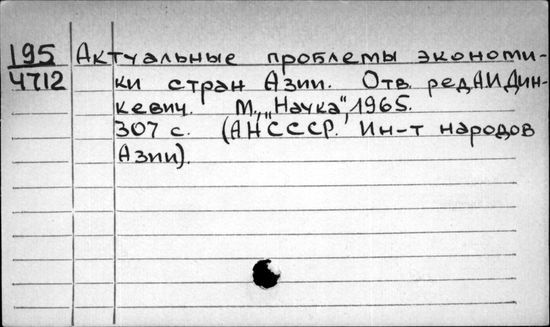 195 Актуальные проблемы экономи-
4712 ки стран Азии. Отв. ред А.И Дин-
кевич. М., „Наука", 1965.
307 с. (АН СССР. Ин-т народов
Азии).